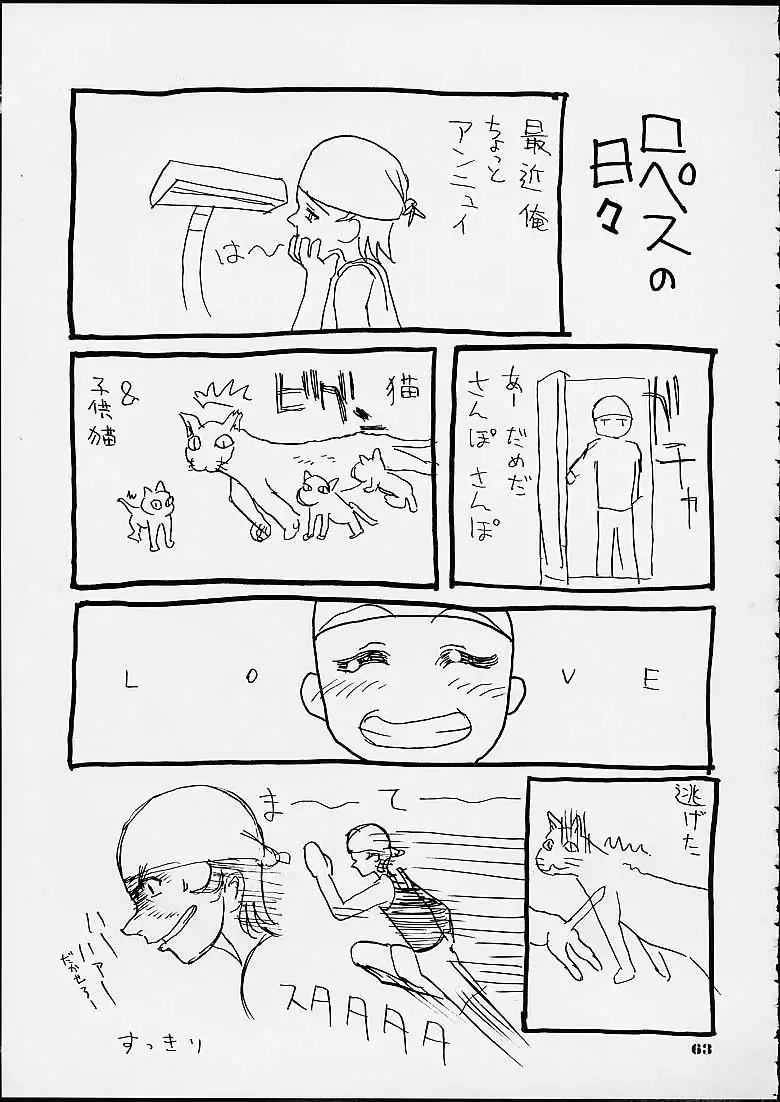 ロペスの
日々
最近俺
ちょっと
アンニュイ
は～
ガチャ
あーだめだ
さんぽさんぽ
猫
ビクッ
&
子供猫
L O V E
逃げた
ま―て―
ハァ
ハァー
だかせろー
スタタタタ
すっきり
63